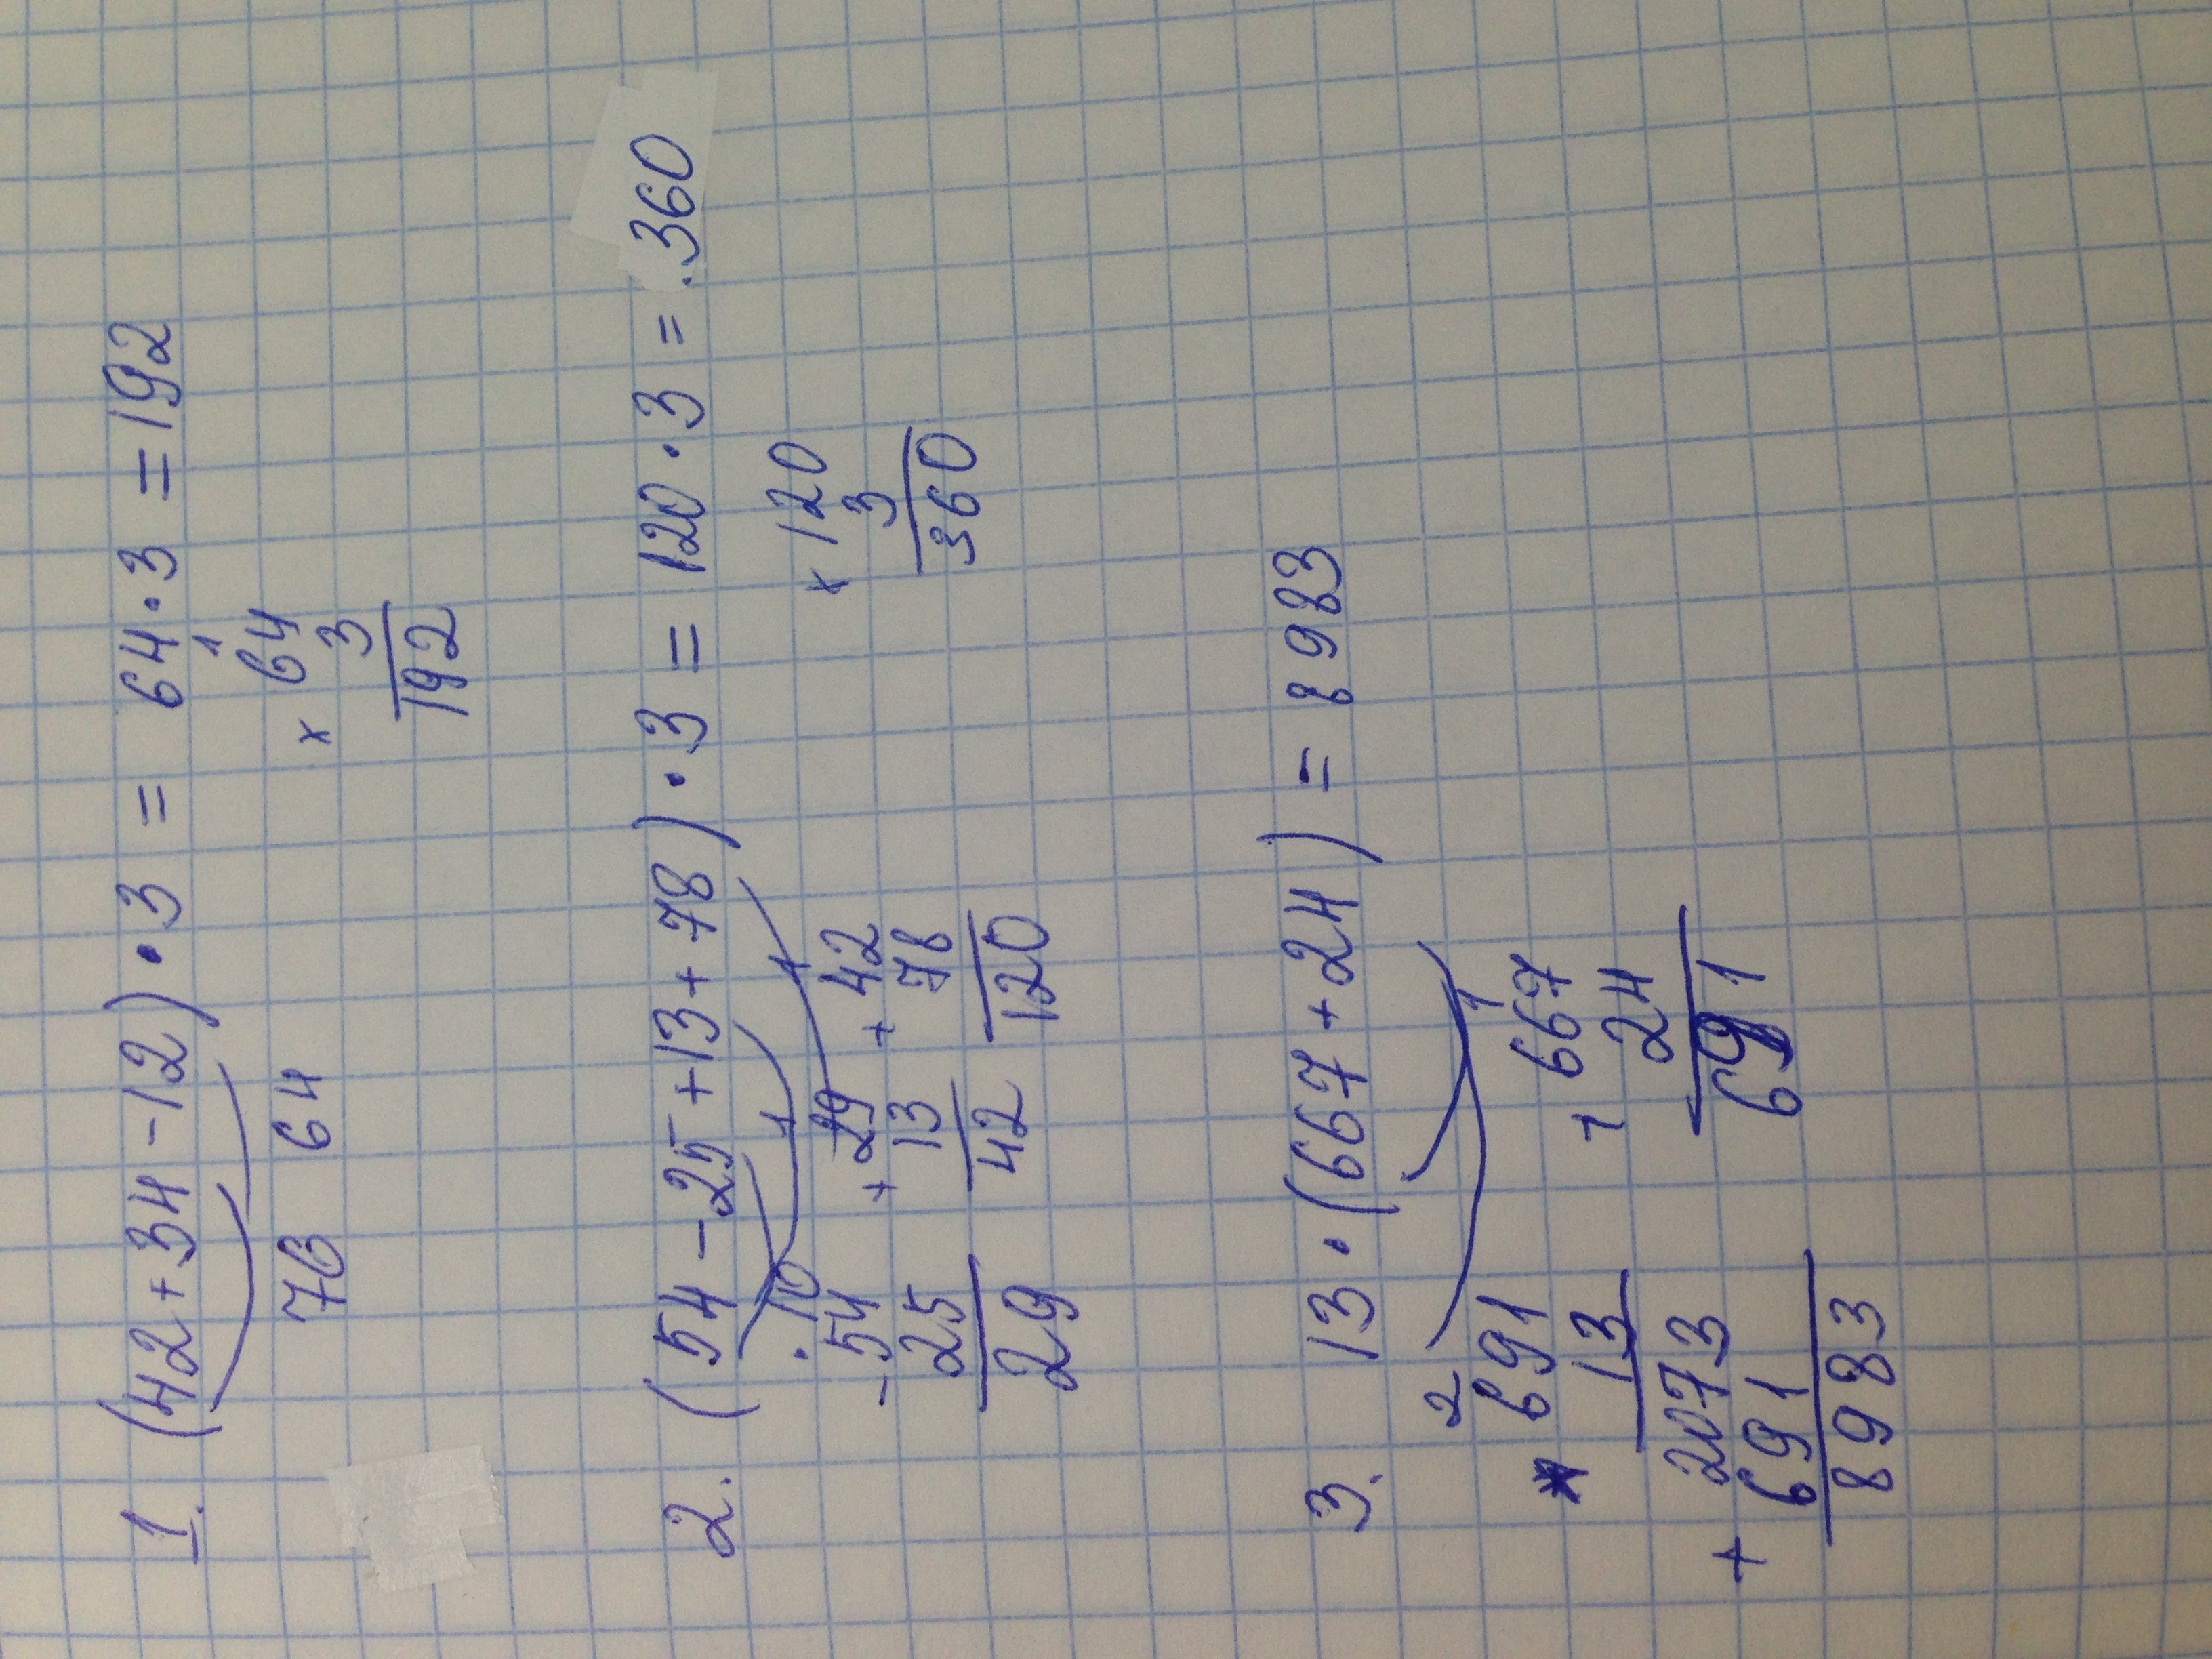 1. (42+34-12)·3 = 64·3 = 192
76 64
1
× 64
3
192
2. (54-25+13+78)·3 = 120·3 = .360
· 10
- 54
25
29
1
+ 29
13
42
1
+ 42
78
120
× 120
3
360
3. 13·(667+24) = 8983
2
× 691
13
2073
+ 691
8983
1
+ 667
24
691